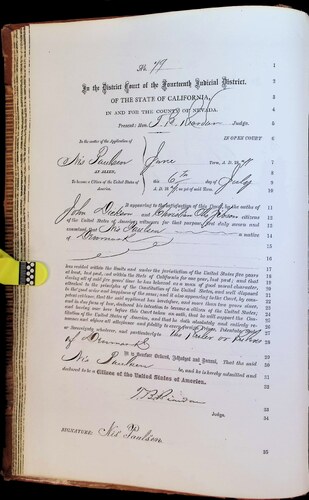 No. 79
In the District Court of the Fourteenth Judicial District.
OF THE STATE OF CALIFORNIA,
IN AND FOR THE COUNTY OF NEVADA.
Present: Hon. T. B. Reardan Judge.
IN OPEN COURT
In the matter of the Application of
Nis Paulsen
AN ALIEN,
To become a Citizen of the United States of America.
June Term, A. D. 1877
this 6th day of July
A. D. 1877
It appearing to the satisfaction of this Court, by the oaths of
John and Christian citizens
of the United States of America, witnesses for that purpose, duly sworn and
examined, that Nis Paulsen a native
of Denmark
has resided within the limits and under the jurisdiction of the United States five years
at least, last past, and within the State of California for one year, last past; and that
during all of said five years' time he has behaved as a man of good moral character,
attached to the principles of the Constitution of the United States, and well disposed
to the good order and happiness of the same; and it also appearing to the Court, by competent
evidence, that the said applicant has heretofore, and more than two years since,
and in due form of law, declared his intention to become a citizen of the United States,
and having now here before this Court taken an oath, that he will support the Constitution
of the United States of America, and that he doth absolutely and entirely renounce
and abjure all allegiance and fidelity to every foreign Prince, Potentate, State
or Sovereignty, whatever, and particularly to The Ruler or Rulers
of Denmark
It is therefore Ordered, Adjudged and Decreed, That the said
Nis Paulsen to, and he is hereby admitted and
declared to be a Citizen of the United States of America.
T. B. Reardan
Judge.
SIGNATURE: Nis Paulsen
1
2
3
4
5
6
7
8
9
10
11
12
13
14
15
16
17
18
19
20
21
22
23
24
25
26
27
28
29
30
31
32
33